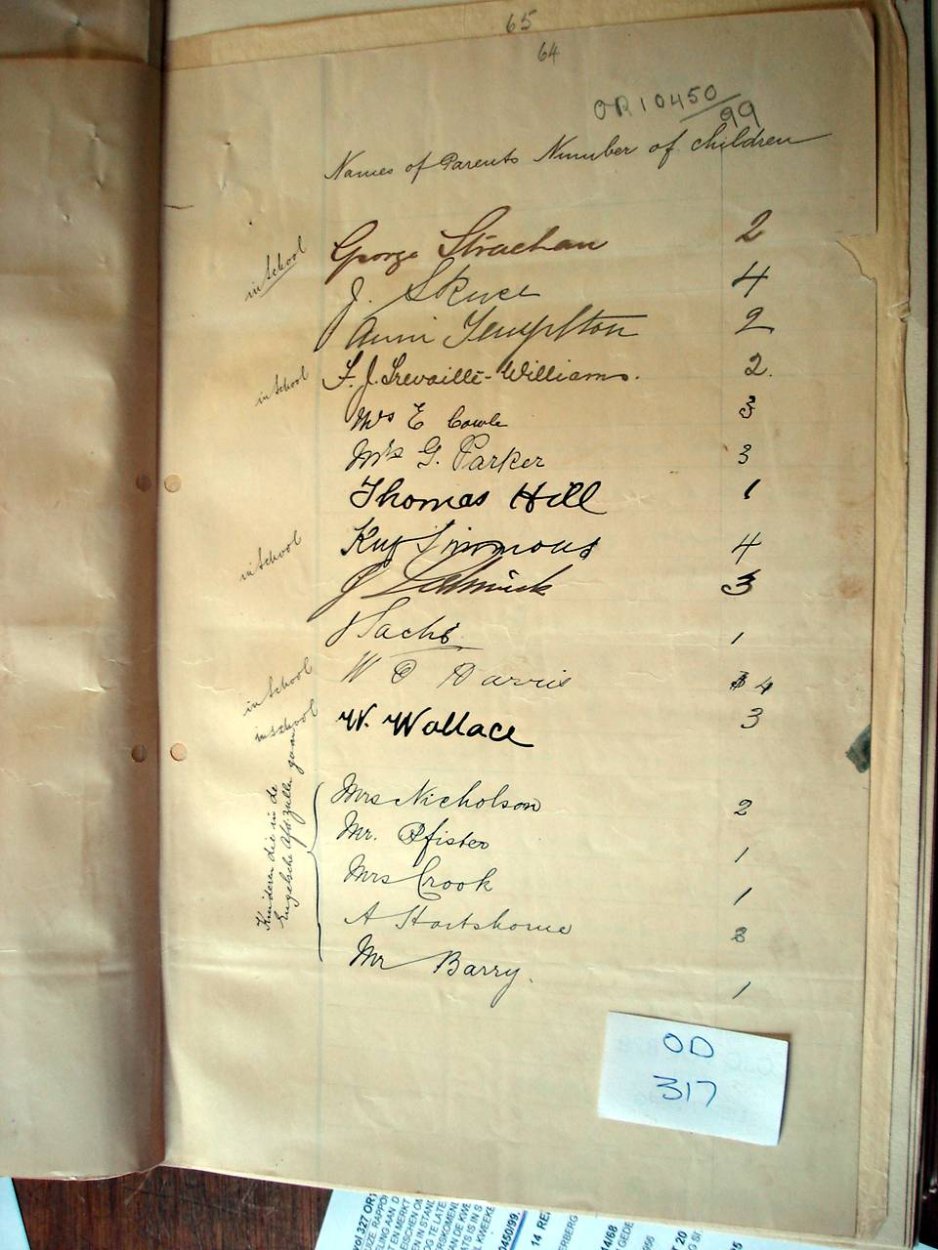 65
64
OR 10450/99
Names of Parents Number of children
in School George Strachan 2
J. 4
Templeton 2
in School F. J. Trevaille-Williams. 2.
Mrs E Cowle 3
Mrs G. Parker 3
Thomas Hill 1
in School Simmons 4
J 3
J Sachs 1
in School W Harris 4
in School W. Wallace 3
Kinderen die in de
Engelsche Afd. zullen gaan
Mrs Nicholson 2
Mr. Pfister 1
Mrs Crook 1
A Hartshorne 3
Mr Barry. 1
OD
317
vol 327
0450/99.
14 RE
14/68
GEDE